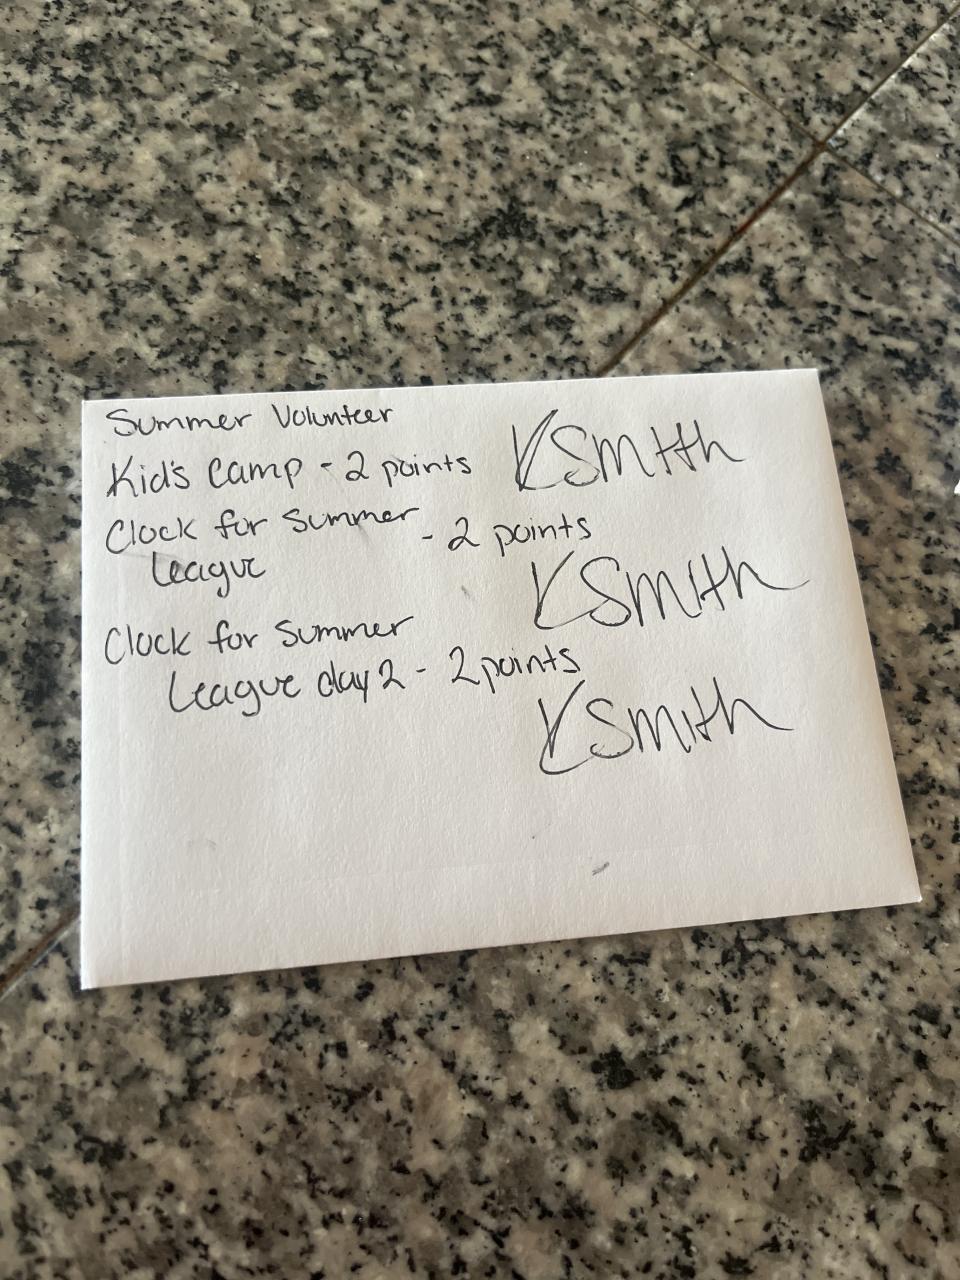 Summer Volunteer
Kid's Camp - 2 points KSmith
Clock for Summer - 2 points
League
KSmith
Clock for Summer
League day 2 - 2 points
KSmith